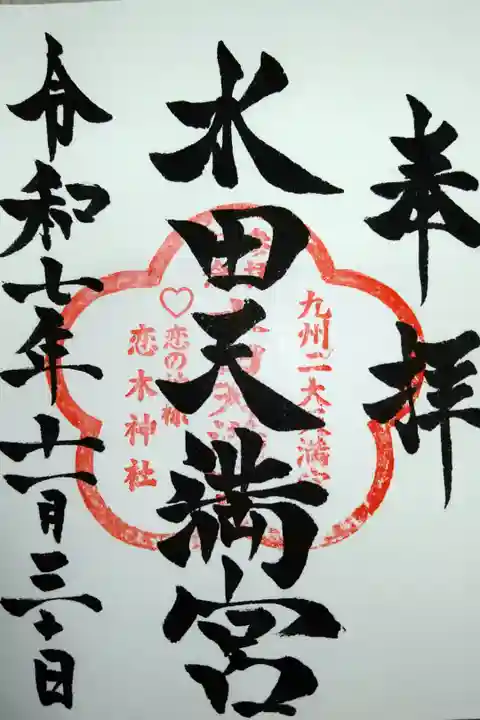 奉拝
九州二大天満宮
水田天満宮
♡恋の神様
恋木神社
令和七年十一月三十日